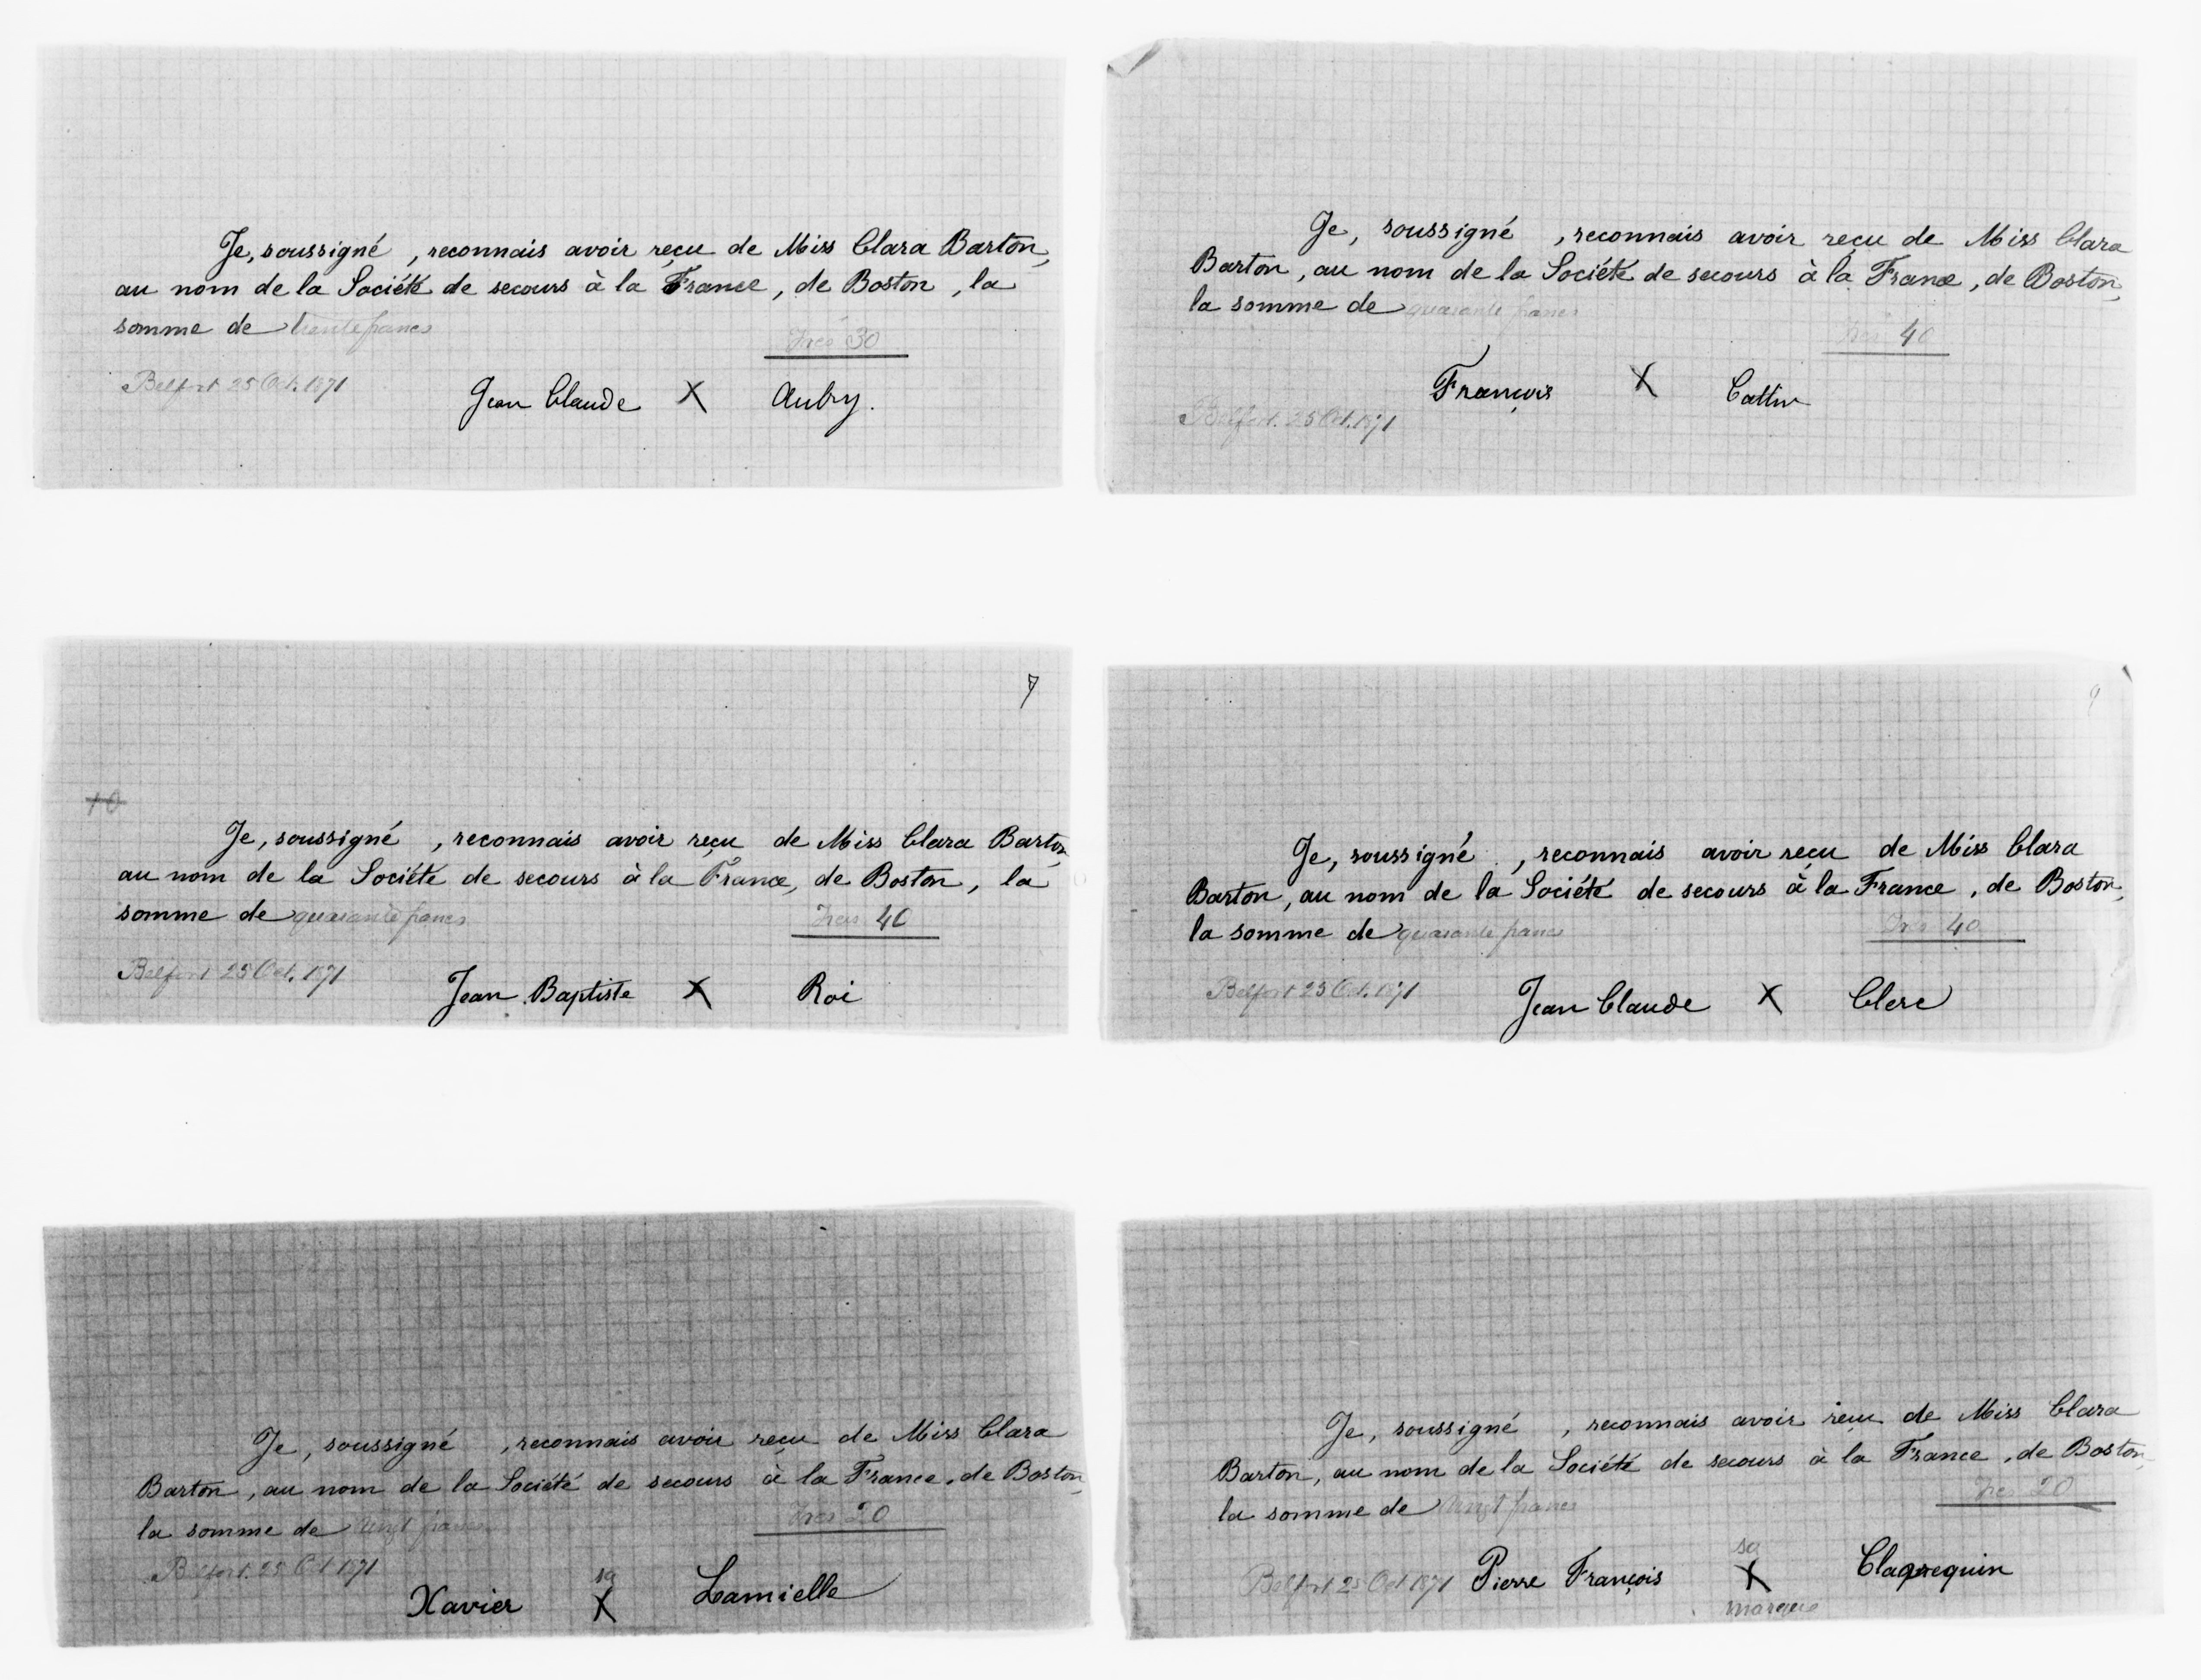 Je, soussigné , reconnais avoir reçu de Miss Clara Barton,
au nom de la Société de secours à la France, de Boston, la
somme de trente francs
Frcs 30
Belfort 25 Oct. 1871
Jean Claude X Aubry.
Je, soussigné , reconnais avoir reçu de Miss Clara
Barton, au nom de la Société de secours à la France, de Boston,
la somme de quarante francs
Frcs 40
François X Cattin
Belfort. 25 Oct. 1871
7
10
Je, soussigné , reconnais avoir reçu de Miss Clara Barton
au nom de la Société de secours à la France, de Boston, la
somme de quarante francs
Frcs 40
Belfort 25 Oct. 1871
Jean Baptiste X Roi
9
Je, soussigné , reconnais avoir reçu de Miss Clara
Barton, au nom de la Société de secours à la France, de Boston,
la somme de quarante francs
Frcs 40
Belfort 25 Oct. 1871
Jean Claude X Clerc
Je, soussigné , reconnais avoir reçu de Miss Clara
Barton, au nom de la Société de secours à la France, de Boston,
la somme de vingt francs
Frcs 20
Belfort. 25 Oct 1871
sa
Xavier X Lamielle
Je, soussigné , reconnais avoir reçu de Miss Clara
Barton, au nom de la Société de secours à la France, de Boston,
la somme de vingt francs
Frcs 20
sa
Belfort 25 Oct 1871 Pierre François X
marque